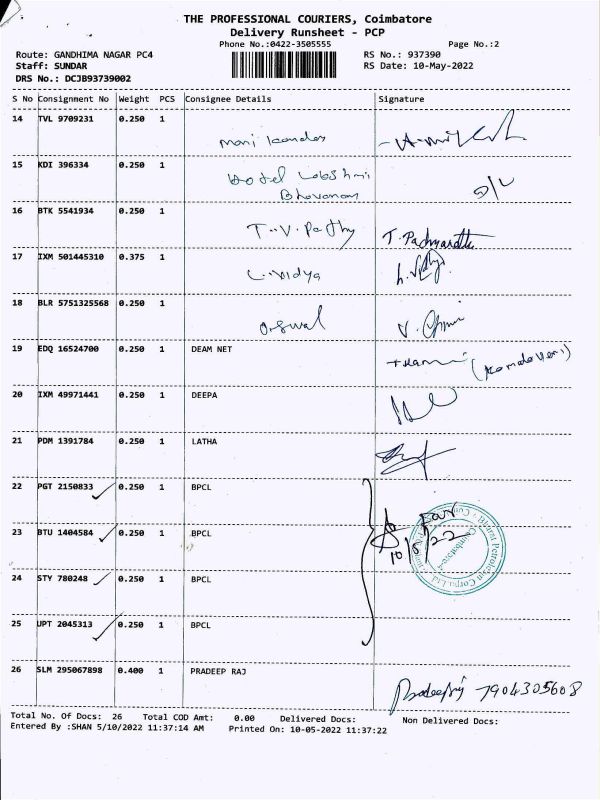 THE PROFESSIONAL COURIERS, Coimbatore
Delivery Runsheet - PCP
Phone No.:0422-3505555 Page No.:2
Route: GANDHIMA NAGAR PC4 RS No.: 937390
Staff: SUNDAR RS Date: 10-May-2022
DRS No.: DCJB93739002
S No Consignment No Weight PCS Consignee Details Signature
14 TVL 9709231 0.250 1
15 KDI 396334 0.250 1 Hotel Lakshmi
Bhavanam
16 BTK 5541934 0.250 1 T.V. Pathy
17 IXM 501445310 0.375 1 L. Vidya
18 BLR 5751325568 0.250 1 Oswal
19 EDQ 16524700 0.250 1 DEAM NET
20 IXM 49971441 0.250 1 DEEPA
21 PDM 1391784 0.250 1 LATHA
22 PGT 2150833 0.250 1 BPCL
For
23 BTU 1404584 0.250 1 BPCL 10/5/22
24 STY 780248 0.250 1 BPCL
25 UPT 2045313 0.250 1 BPCL
26 SLM 295067898 0.400 1 PRADEEP RAJ
7904305608
Total No. Of Docs: 26 Total COD Amt: 0.00 Delivered Docs: Non Delivered Docs:
Entered By :SHAN 5/10/2022 11:37:14 AM Printed On: 10-05-2022 11:37:22